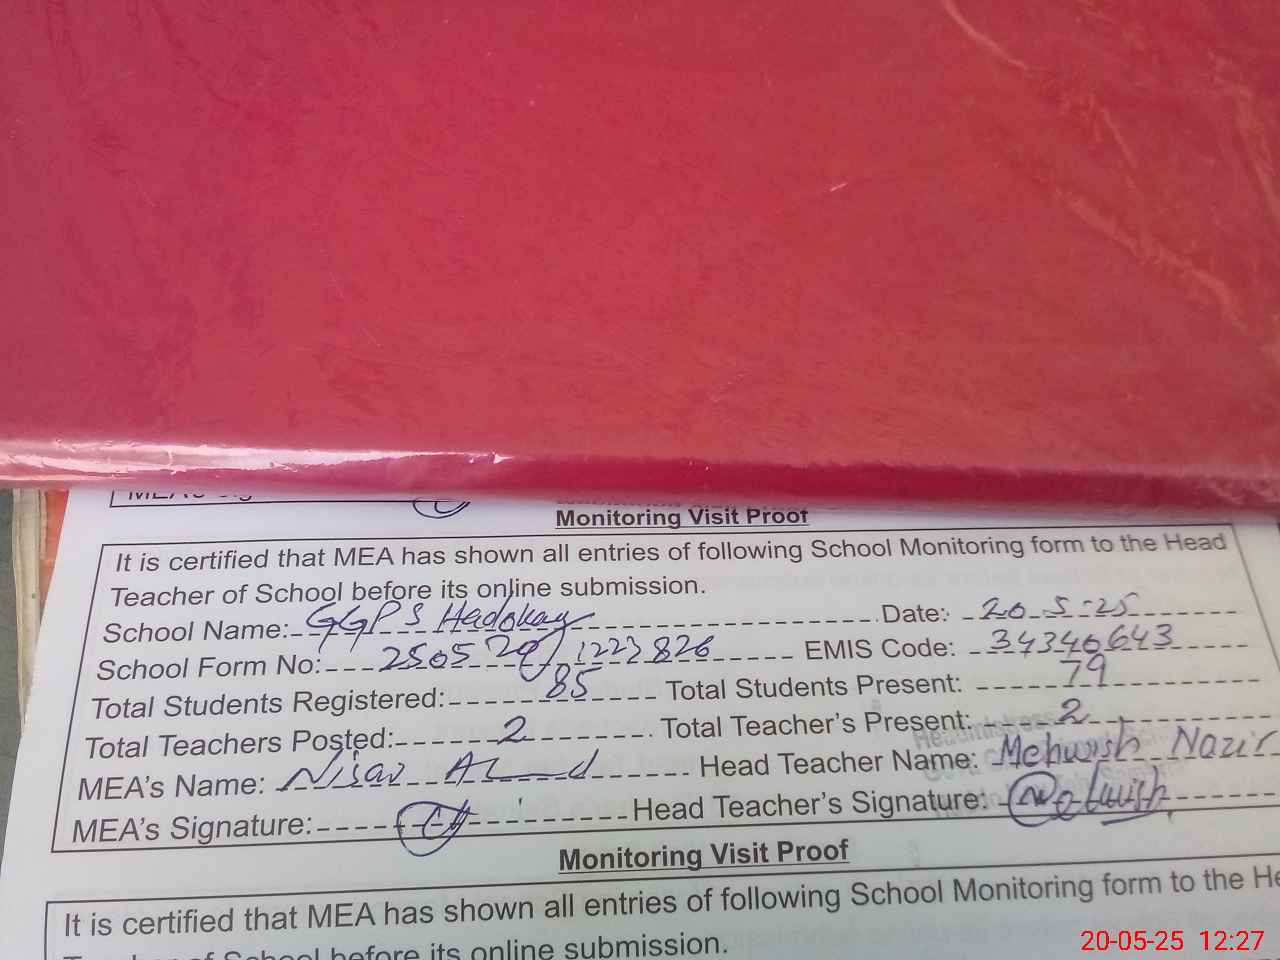 Monitoring Visit Proof
It is certified that MEA has shown all entries of following School Monitoring form to the Head
Teacher of School before its online submission.
School Name: GGPS Hadokay Date: 20-5-25
School Form No: 250520/1223826 EMIS Code: 34340643
Total Students Registered: 85 Total Students Present: 79
Total Teachers Posted: 2 Total Teacher's Present: 2
MEA's Name: Nisar Head Teacher Name: Mehwish Nazir
MEA's Signature: Head Teacher's Signature: Mehwish
Monitoring Visit Proof
It is certified that MEA has shown all entries of following School Monitoring form to the He
Teacher of School before its online submission.
20-05-25 12:27